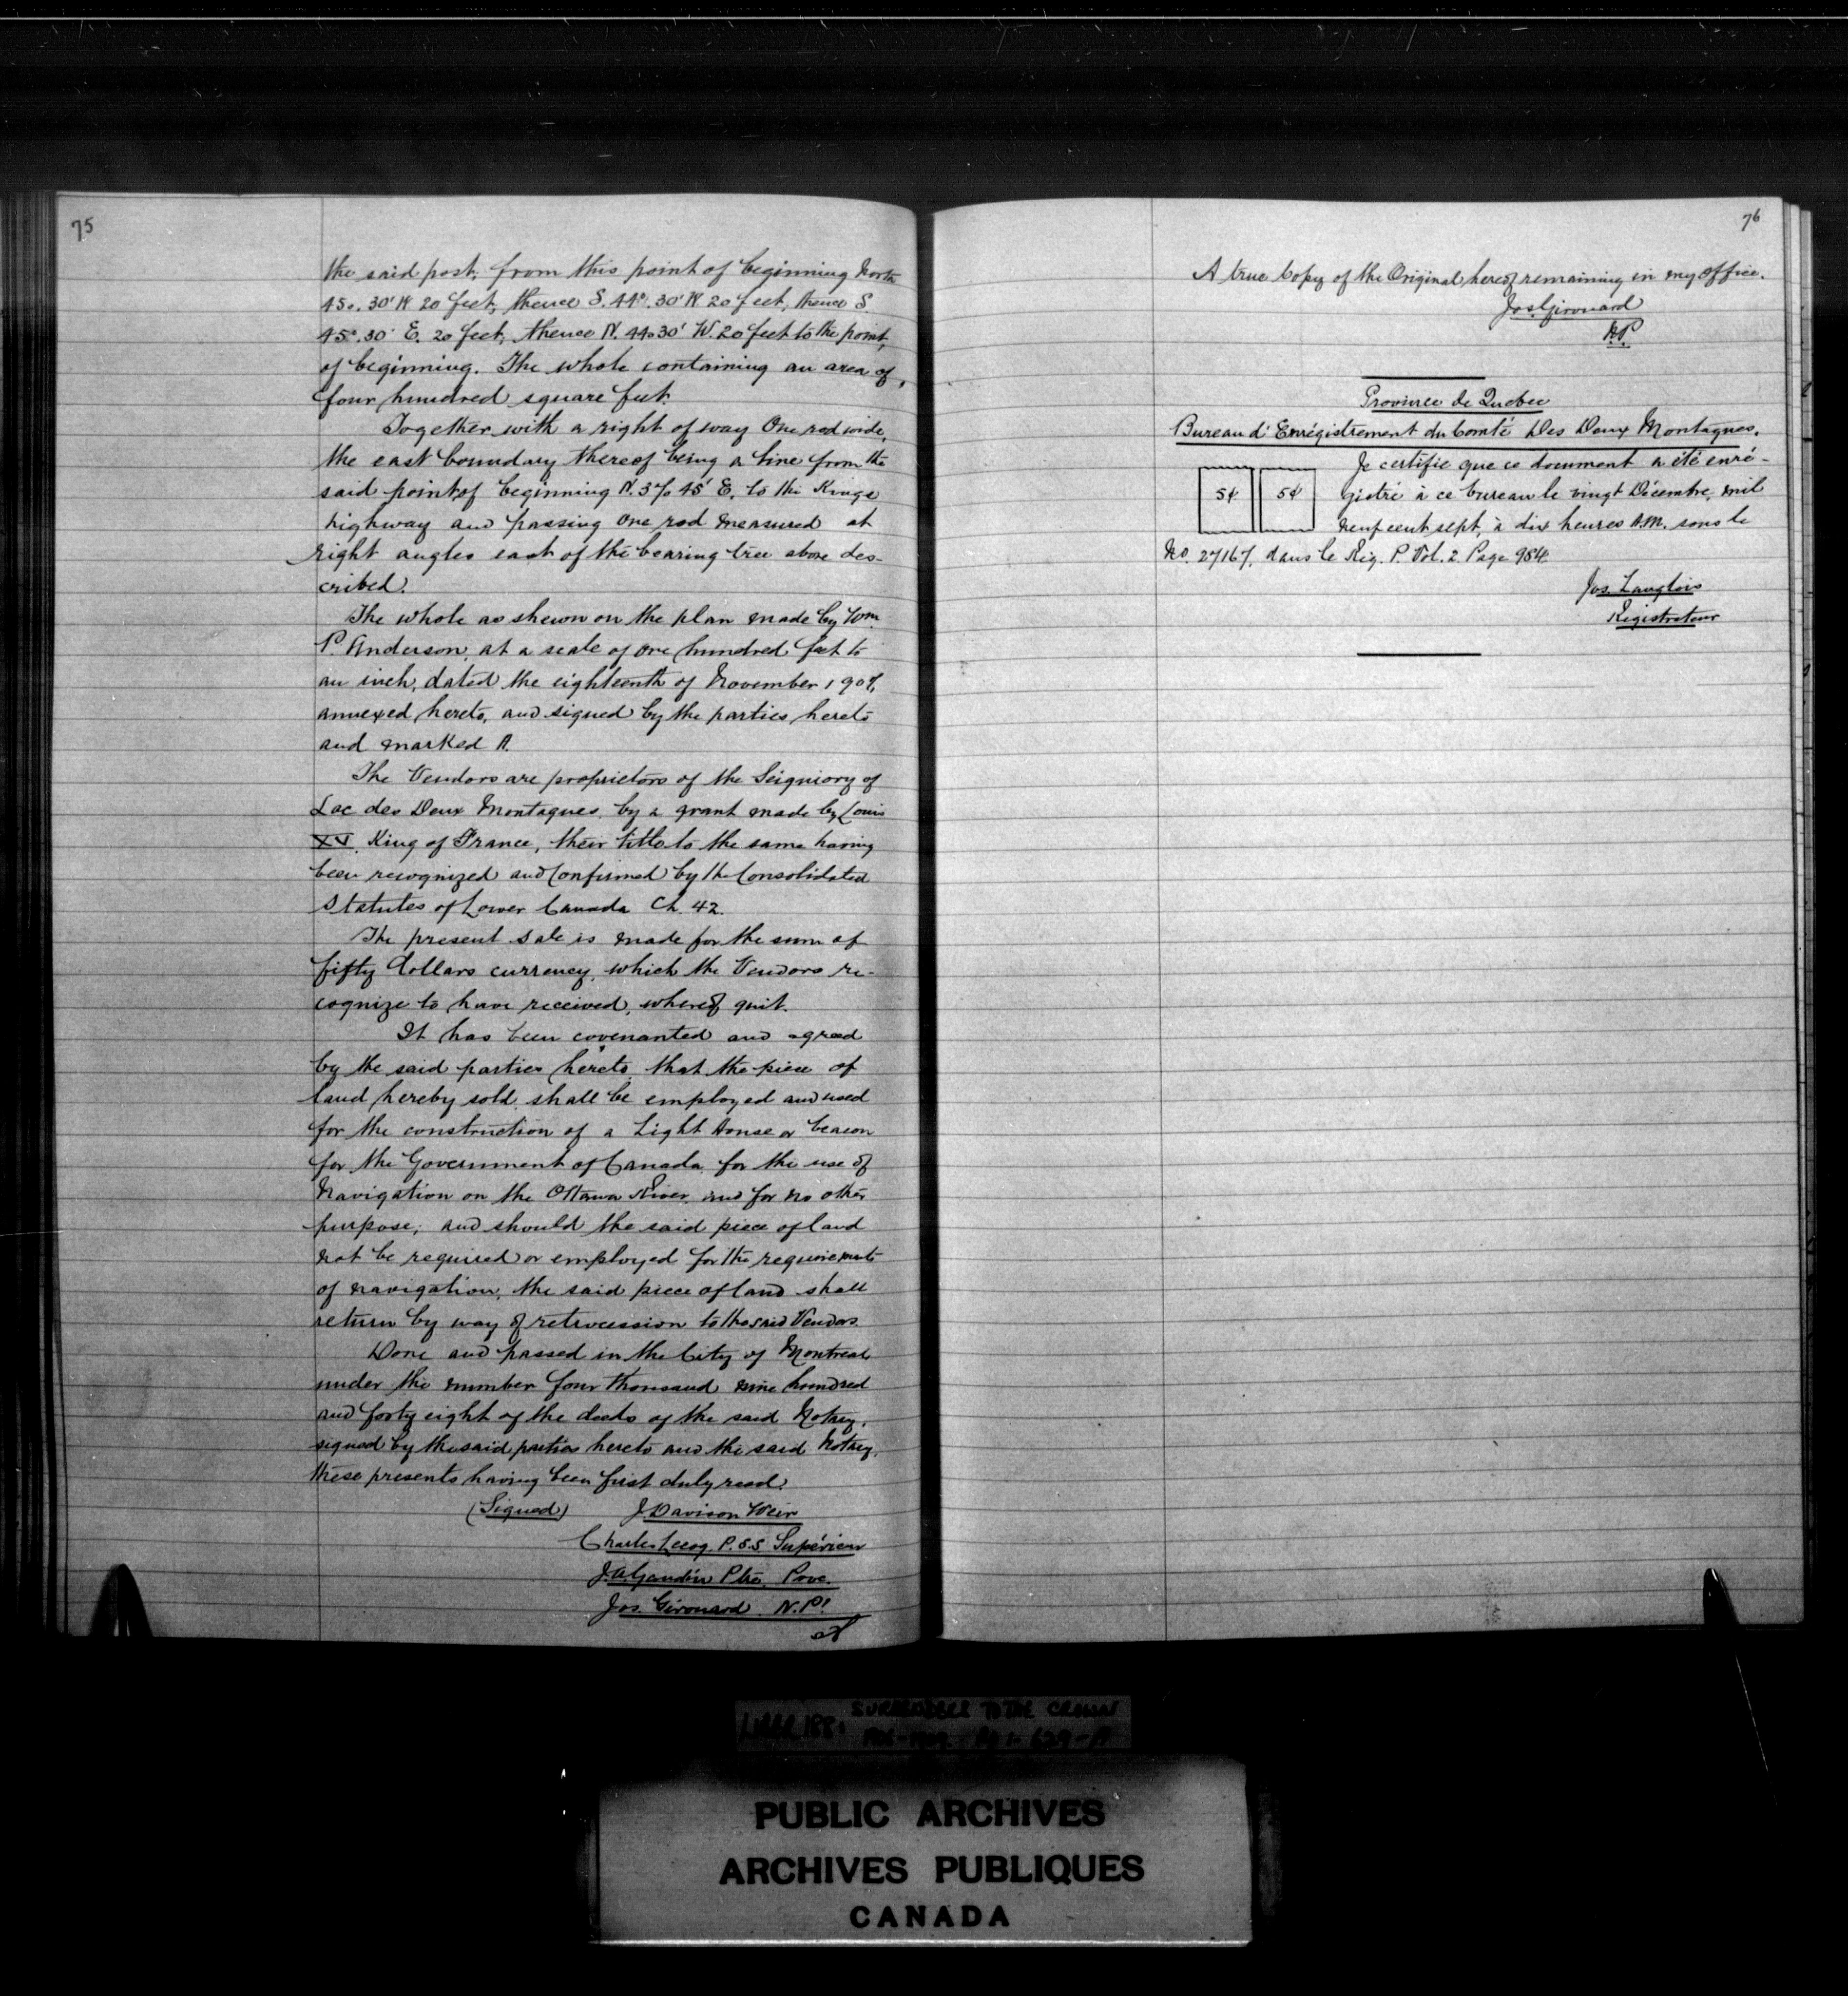 75
the said post, from this point of beginning North
45°. 30' W 20 feet, thence S. 44°. 30' W 20 feet, thence S.
45°. 30' E. 20 feet, thence N. 44°30' W. 20 feet to the point,
of beginning. The whole containing an area of,
four hundred square feet.
Together with a right of way One rod wide,
the east boundary thereof being a line from the
said point of beginning N. 3% 45' E. to the Kings
highway and passing one rod measured at
right angles east of the bearing tree above des-
cribed.
The whole as shewn on the plan made by Wm
P. Anderson, at a scale of one hundred feet to
an inch, dated the eighteenth of November 1907,
annexed hereto, and signed by the parties hereto
and marked A.
The Vendors are proprietors of the Seigniory of
Lac des Deux Montagnes, by a grant made by Louis
XV, King of France, their title to the same having
been recognized and Confirmed by the Consolidated
Statutes of Lower Canada Ch. 42.
The present sale is made for the sum of
fifty Dollars currency, which the Vendors re-
cognize to have received, whereof quit.
It has been covenanted and agreed
by the said parties hereto, that the piece of
land hereby sold, shall be employed and used
for the construction of a Light House or beacon
for the Government of Canada, for the use of
Navigation on the Ottawa River, and for no other
purpose; and should the said piece of land
not be required or employed for the requirements
of navigation, the said piece of land shall
return by way of retrocession to the said Vendors.
Done and passed in the City of Montreal
under the number four thousand nine hundred
and forty eight of the deeds of the said Notary,
signed by the said parties hereto and the said Notary,
these presents having been first duly read.
(Signed) J Davison Weir
Charles Lecoq. P.S.S. Supérieur
J.A. Gaudin Ptre. Proc.
Jos. Girouard. N.P.
76
A true Copy of the Original hereof remaining in my office.
Jos. Girouard
N.P.
Province de Quebec
Bureau d'Enrégistrement du Comté Des Deux Montagnes.
Je certifie que ce document a été enré-
5¢ 5¢ gistré à ce bureau le vingt Décembre, mil
neuf cent sept, à dix heures A.M. sous le
No. 27167, dans le Reg. P. Vol. 2. Page 984
Jos. Langlois
Registrateur
LIBER 188: SURRENDERS TO THE CROWN
PUBLIC ARCHIVES
ARCHIVES PUBLIQUES
CANADA